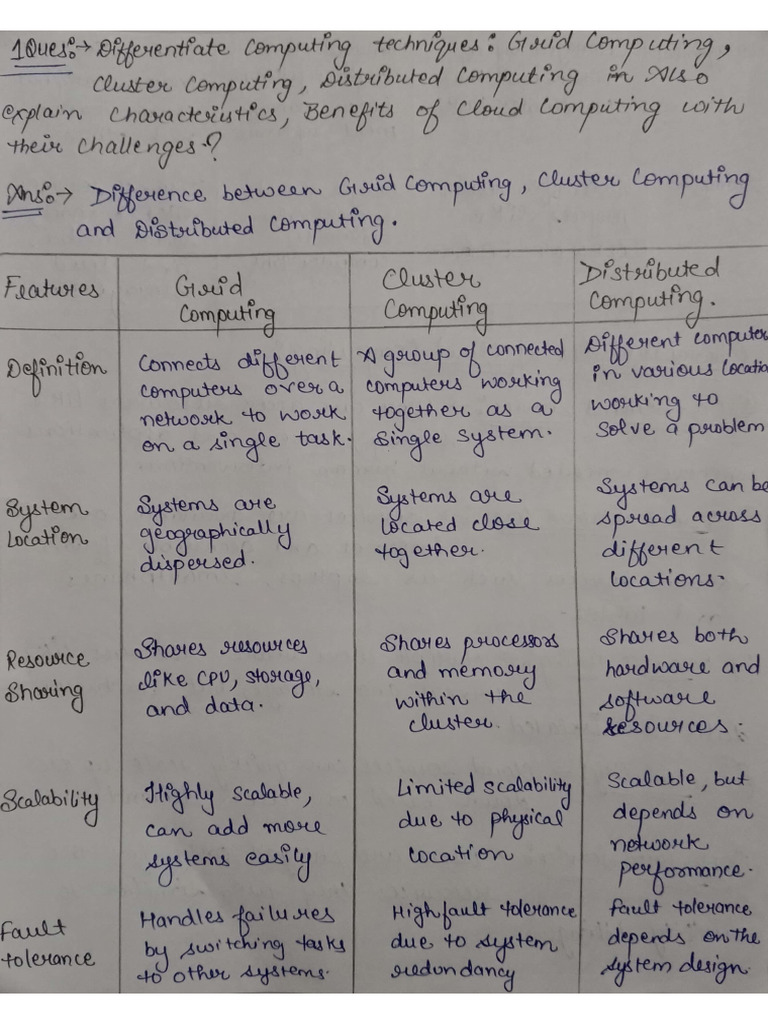 1Ques:→ Differentiate Computing techniques: Grid Computing,
Cluster Computing, Distributed Computing in Also
explain Characteristics, Benefits of Cloud Computing with
their Challenges?
Ans:→ Difference between Grid Computing, Cluster Computing
and Distributed Computing.
Features
Grid
Computing
Cluster
Computing
Distributed
Computing.
Definition
Connects different
computers over a
network to work
on a single task.
A group of connected
computers working
together as a
single system.
Different computer
in various locatio
working to
solve a problem
System
Location
Systems are
geographically
dispersed.
Systems are
located close
together.
Systems can be
spread across
different
locations.
Resource
Sharing
Shares resources
like CPU, storage,
and data.
Shares processors
and memory
within the
cluster.
Shares both
hardware and
software
resources.
Scalability
Highly scalable,
can add more
systems easily
Limited scalability
due to physical
location
Scalable, but
depends on
network
performance.
Fault
tolerance
Handles failures
by switching tasks
to other systems.
High fault tolerance
due to system
redundancy
fault tolerance
depends on the
system design.